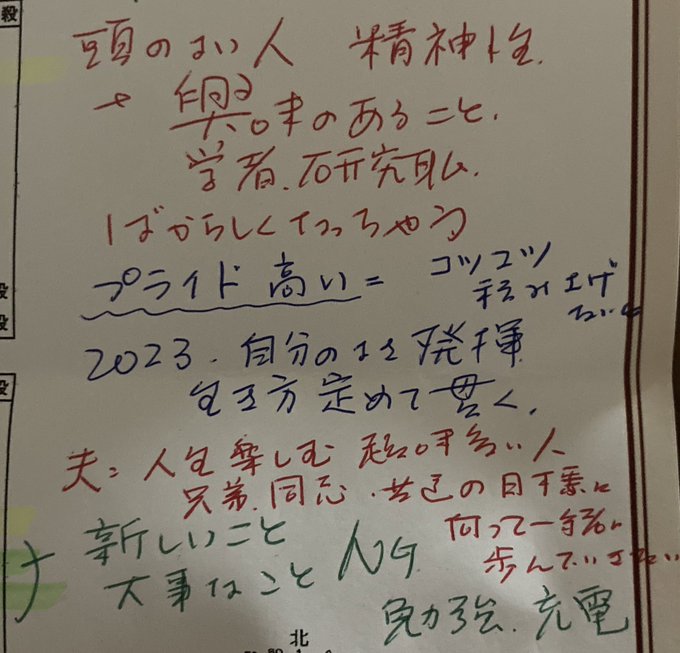 殺
頭のよい人 精神性
+ 興味のあること、
学者、研究職、
ばからしくなっちゃう
プライド高い= コツコツ
積み上げ
ないと
2023、自分のよさ発揮
生き方定めて貫く、
夫:人生楽しむ 趣味多い人
兄弟、同志、共通の目標に
向って一緒に
歩んでいきたい
新しいこと
大事なこと NG
勉強、充電
北